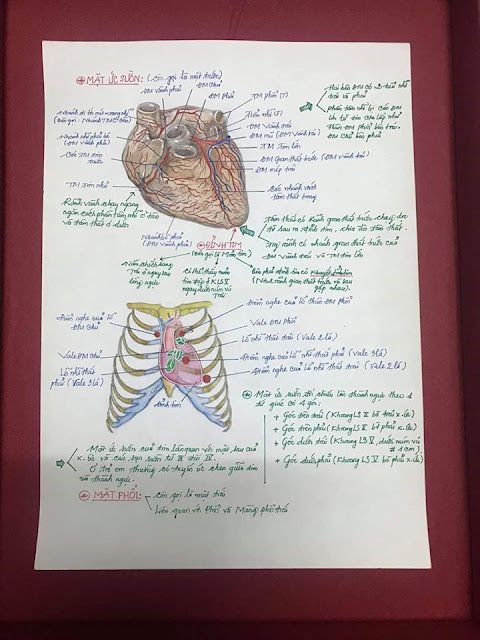 ⊕ MẶT ỨC SƯỜN: (còn gọi là mặt trước)
ĐM Chủ
ĐM Vành phải
ĐM Phổi
TM Phổi (T)
Tiểu nhĩ (T)
ĐM Vành trái
ĐM mũ (ĐM Vành trái)
TM Tim lớn
ĐM Gian thất trước (ĐM Vành trái)
ĐM mép trái
Các nhánh vách
tâm thất trong
(ĐM Vành phải)
Các TM tim
trước
TM Tim nhỏ
Rãnh vành chạy ngang
ngăn cách phần tâm nhĩ ở trên
và tâm thất ở dưới
Nhánh bờ phải
(ĐM Vành phải)
trái và phải
Thân ĐM phổi bên trái.
ĐM Chủ bên phải
Tâm thất có Rãnh gian thất trước chạy dọc
Trong rãnh có nhánh gian thất trước của
ĐM Vành trái và TM tim lớn
⊕ ĐỈNH TIM
(còn gọi là Mỏm tim)
Nằm chếch sang
Trái ở ngay sau
lồng ngực
Có thể thấy mỏm
tim đập ở KLS V
ngay dưới núm vú
Trái
Bên phải đỉnh tim có Khuyết đỉnh tim
(Nơi rãnh gian thất trước và sau
gặp nhau).
Điểm nghe của lỗ Thân ĐM Phổi
Điểm nghe của lỗ
ĐM Chủ
Vale ĐM Phổi
Lỗ nhĩ thất trái (Vale 2 lá)
Vale ĐM Chủ
Điểm nghe của Lỗ nhĩ thất phải (Vale 3 lá)
Lỗ nhĩ thất
phải (Vale 3 lá)
Điểm nghe của Lỗ nhĩ thất trái (Vale 2 lá)
Đỉnh tim
⊕ Mặt ức sườn đối chiếu lên thành ngực theo 1
tứ giác có 4 góc:
+ Góc trên trái (Khoang LS II bờ trái x.ức)
+ Góc trên phải (Khoang LS II bờ phải x.ức)
+ Góc dưới trái (Khoang LS V, dưới núm vú
+ Góc dưới phải (Khoang LS V bờ phải x.ức)
Mặt ức sườn của tim liên quan với mặt sau của
x.ức và các sụn sườn từ III đến VI.
Ở trẻ em thường có tuyến ức chen giữa tim
và thành ngực.
⊕ MẶT PHỔI: - Còn gọi là mặt trái
- Liên quan với Phổi và Màng phổi trái